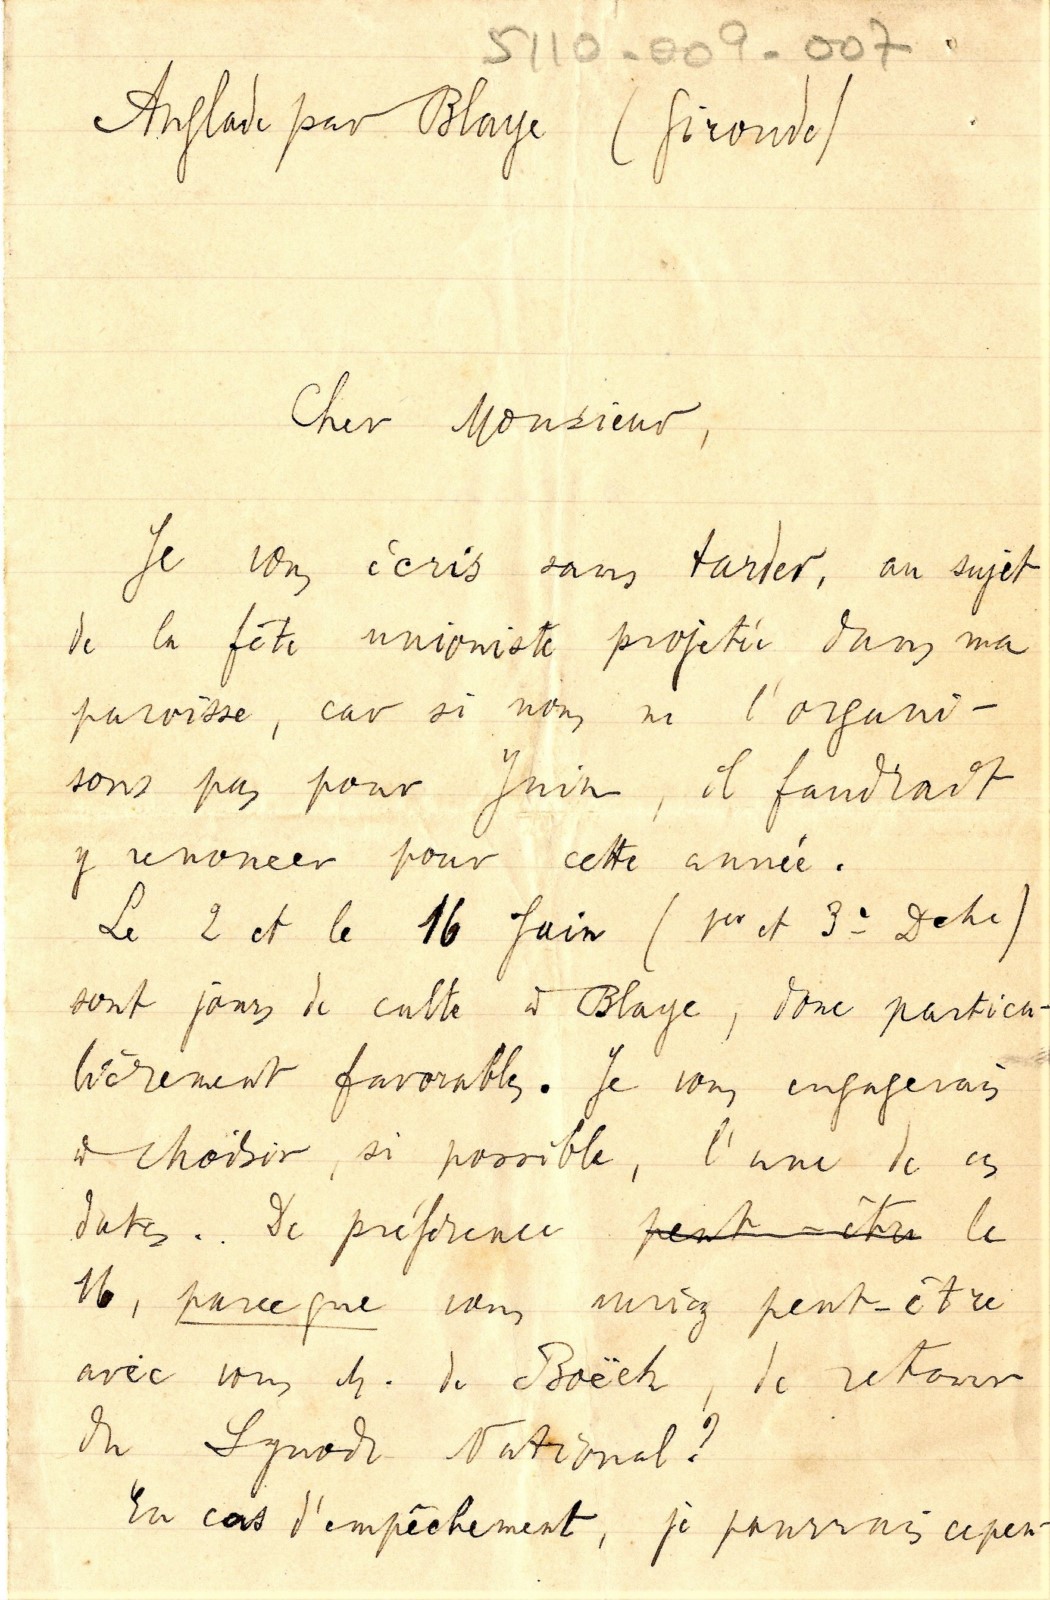 5110-009-007
Anglade par Blaye (Gironde)
Cher Monsieur,
Je vous écris sans tarder, au sujet
de la fête unioniste projetée dans ma
paroisse, car si nous ne l'organi-
sons pas pour Juin, il faudrait
y renoncer pour cette année.
Le 2 et le 16 Juin (1er et 3e Dche)
sont jours de culte à Blaye, donc particu-
lièrement favorables. Je vous engagerais
à choisir, si possible, l'une de ces
dates.. De préférence peut-être le
16, parceque vous auriez peut-être
avec vous M. de Boëck, de retour
du Synode National?
En cas d'empêchement, je pourrais cepen-